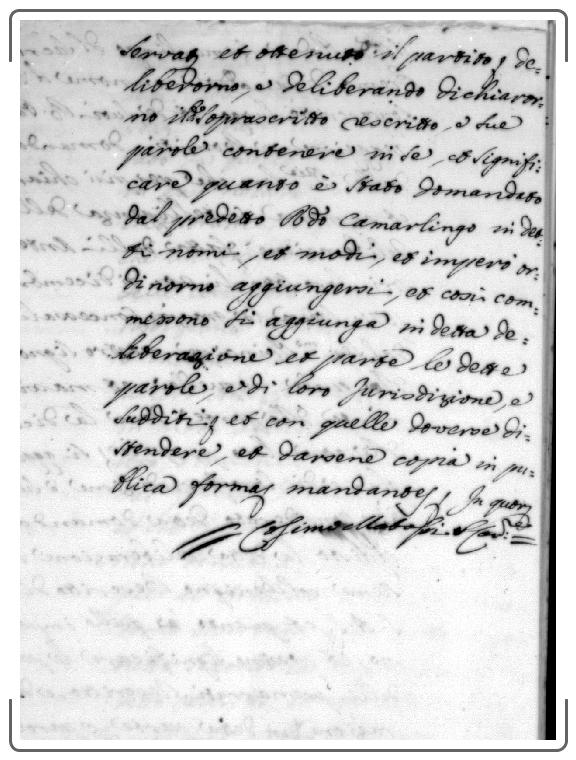 servat et ottenuto il partito, de-
liberorno, e deliberando dichiaror-
no il soprascritto rescritto, e sue
parole contenere in se, et signifi-
care quanto è stato domandato
dal predetto Rdo Camarlingo in det-
ti nomi, et modi, et imperò or-
dinorno aggiungersi, et così com-
messono si aggiunga in detta de-
liberazione et parte le dette
parole, e di loro Jurisdizione, e
sudditi, et con quelle doverse di-
stendere, et darsene copia in pu-
blica forma, mandantes, In quor
Cosimo